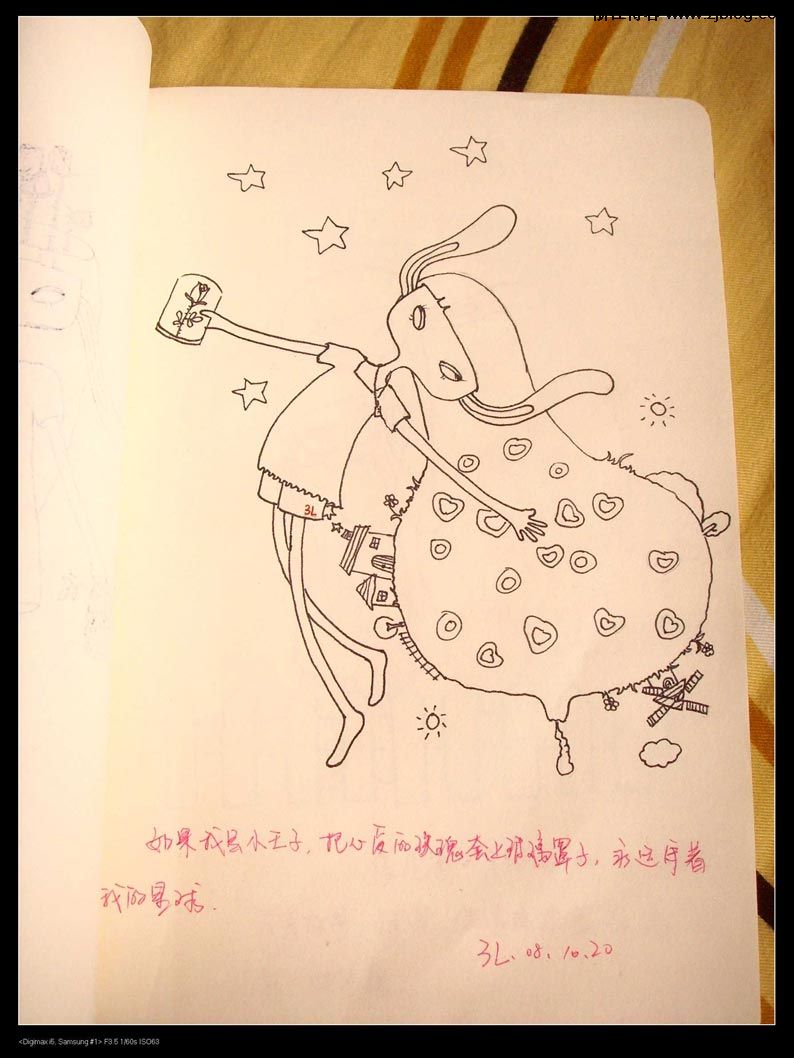 www.zjblog.co
3L
如果我是小王子，把心爱的玫瑰套上玻璃罩子，永远守着
我的星球.
3L. 08. 10. 20
<Digimax i5, Samsung #1> F3.5 1/60s ISO63